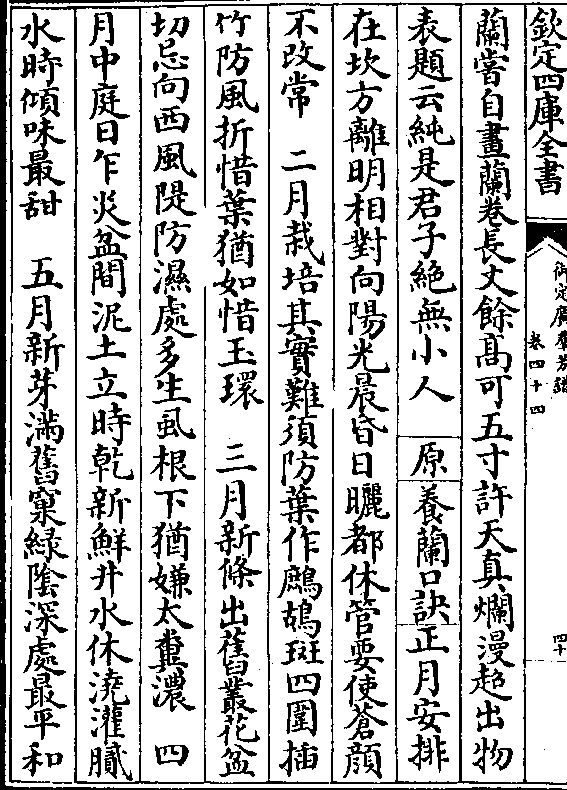 欽定四庫全書
御定廣羣芳譜
卷四十四
四十
蘭嘗自畫蘭卷長丈餘髙可五寸許天真爛漫超出物
表題云純是君子絶無小人 原養蘭口訣正月安排
在坎方離明相對向陽光晨昏日曬都休管要使蒼顔
不改常 二月栽培其實難須防葉作鷓鴣斑四圍插
竹防風折惜葉猶如惜玉環 三月新條出舊叢花盆
切忌向西風隄防濕處多生風根下猶嫌太糞濃 四
月中庭日乍炎盆間泥土立時乾新鮮井水休澆灌膩
水時傾味最甜 五月新芽滿舊窠緑陰深處最平和